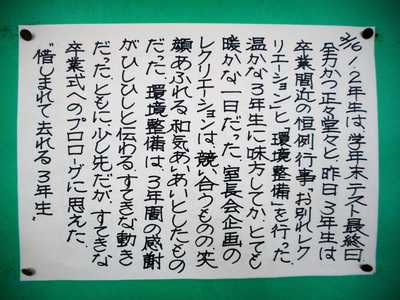 2/6 1、2年生は、学年末テスト最終日。
全力かつ正々堂々と。昨日、3年生は
卒業間近の恒例行事“お別れレク
リエーション”と“環境整備”を行った。
温かな3年生に味方してか、とても
暖かな一日だった。室長会企画の
レクリエーションは、競い合うものの笑
顔あふれる和気あいあいとしたもの
だった。環境整備は、3年間の感謝
がひしひしと伝わるすてきな動き
だった。ともに、少し先だが、すてきな
卒業式へのプロローグに思えた。
“惜しまれて去れる3年生”